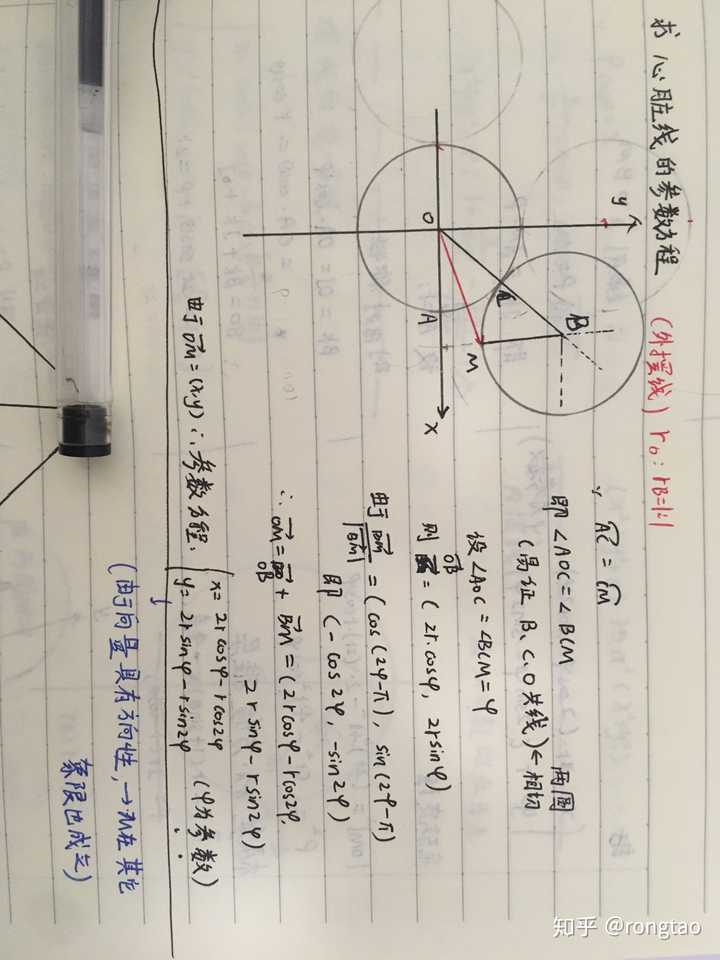 求心脏线的参数方程 (外摆线) r₀:rB=1:1
y
O
A
C
B
M
x
∵ AC = CM
即 ∠AOC=∠BCM 两圆
(易证 B、C、O共线)←相切
设 ∠AOC=∠BCM=φ
则 OB = (2r·cosφ, 2rsinφ)
由于 BM/|BM| = (cos(2φ-π), sin(2φ-π))
即 (-cos2φ, -sin2φ)
∴ OM = OB + BM = (2rcosφ-rcos2φ,
2rsinφ-rsin2φ)
由于 OM=(x,y) ∴ 参数方程: { x=2rcosφ-rcos2φ
y=2rsinφ-rsin2φ (φ为参数)
(由于向量具有方向性,→M在其它
象限也成立)
知乎 @rongtao